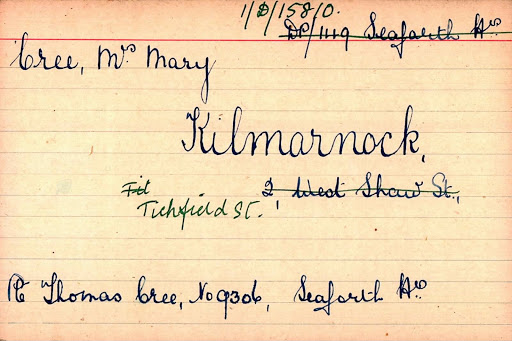 1/D/15810.
DP/1119 Seaforth Hrs
Cree, Mrs Mary
Kilmarnock,
2, West Shaw St.,
Fit
Tichfield St.
Pte Thomas Cree, No 9306, Seaforth Hrs